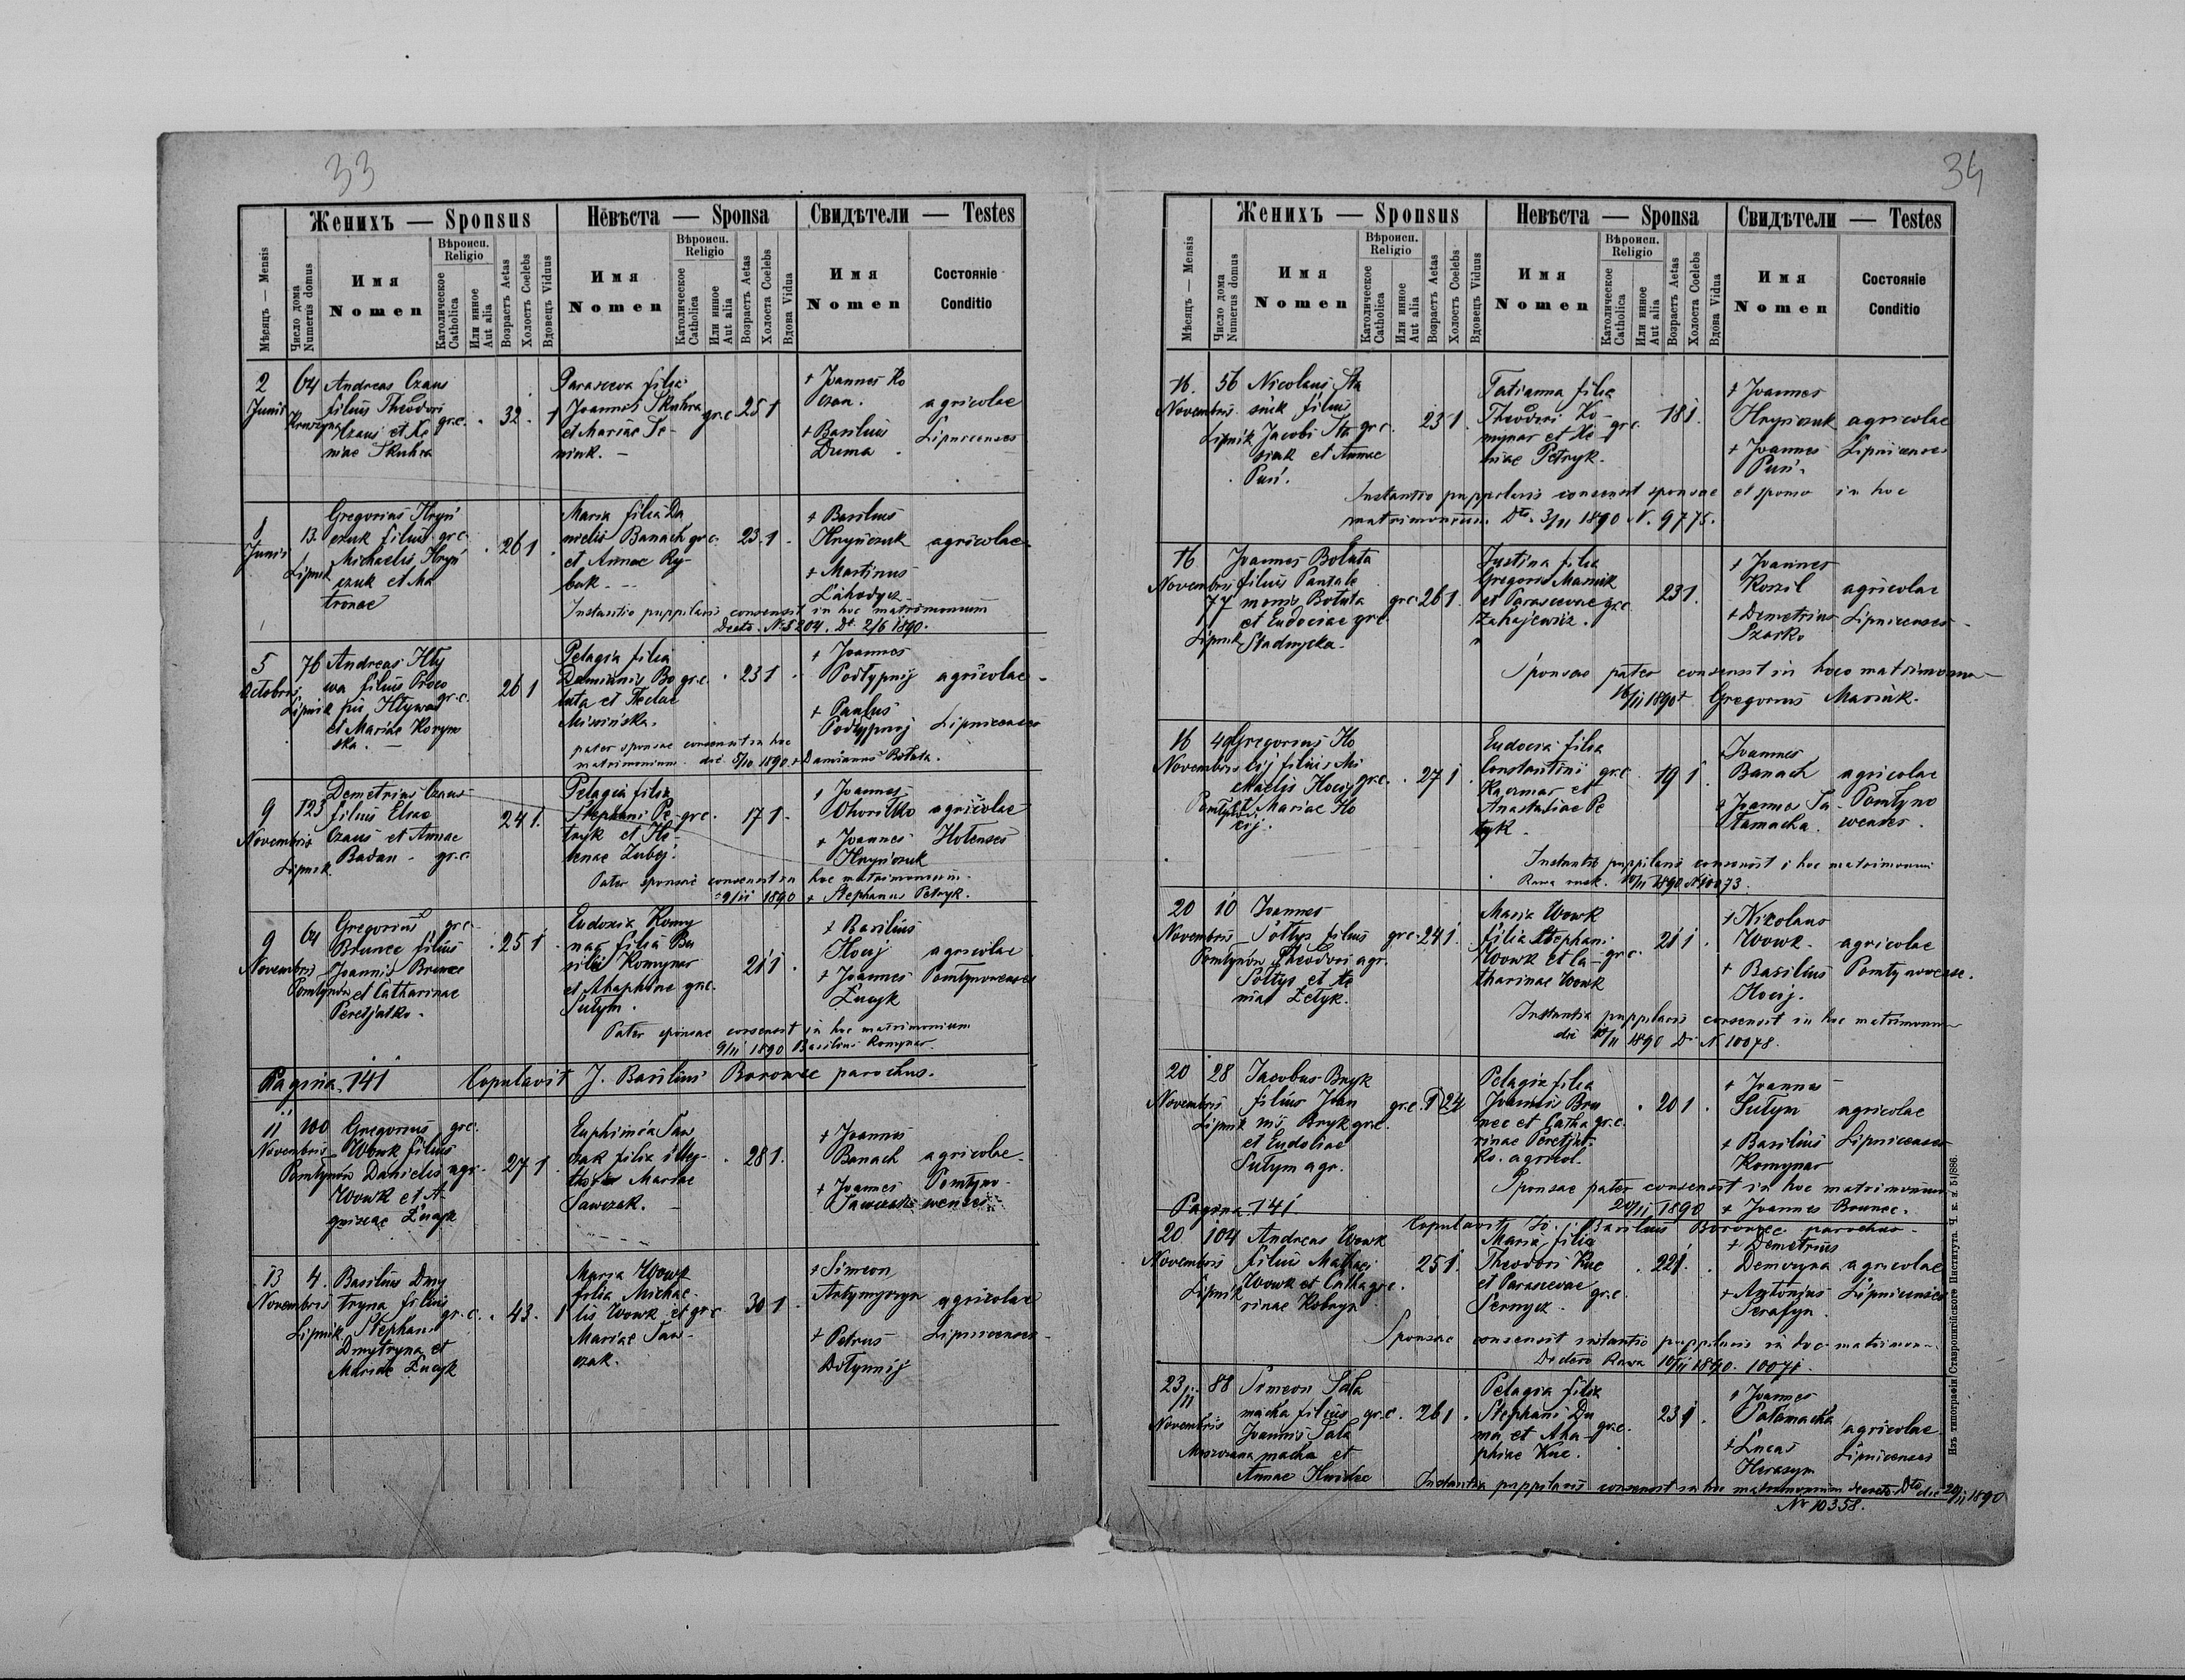 33
Женихъ — Sponsus
Невѣста — Sponsa
Свидѣтели — Testes
Мѣсяцъ — Mensis
Число дома
Numerus domus
Имя
Nomen
Вѣроисп.
Religio
Католическое
Catholica
Или инное
Aut alia
Возрастъ Aetas
Холостъ Coelebs
Вдовецъ Viduus
Имя
Nomen
Вѣроисп.
Religio
Католическое
Catholica
Или инное
Aut alia
Возрастъ Aetas
Холоста Coelebs
Вдова Vidua
Имя
Nomen
Состояніе
Conditio
2 Junii
64
Andreas Czaus
filius Theodori
Czaus et Xe
niae Skuhra
gr.c. 32. 1
Parasceva filia
Joannis Skuhra
et Mariae Se-
niuk. —
gr.c 25 1
+ Joannes Ko
czan.
+ Basilius
Duma
agricolae
Lipnicenses
Junii
13.
Lipnik
Gregorius Hryń
czuk filius gr.c.
Michaelis Hryń
czuk et Ma
tronae
26 1
Maria filia Da
nielis Banach gr.c.
et Annae Ry-
bak. —
23. 1
+ Basilius
Hryńczuk
+ Martinus
Lahodycz
agricolae
Instantio puppilaris consensit in hoc matrimonium
Decto. N. 5204. Dt. 2/6 1890.
5 Octobris
76 Lipnik
Andreas Hły
wa filius Proco
pii Hlywa gr.c.
et Mariae Korym
ska. —
26 1
Pelagia filia
Damianis Bo gr.c.
łuta et Theclae
23 1
+ Joannes
Podłypnij
+ Paulus
Podłypnij
agricolae
Lipnicenses
pater sponsae consensit in hoc
matrimonium. dei 5/10 1890. + Damianus Bołuta.
9 Novembris
123 Lipnik
Demetrius Czaus
filius Eliae
Czaus et Annae
Badan. gr.c.
24 1.
Pelagia filia
Stephani Pe- gr.c.
tryk et He-
lenae Zubej.
17 1.
+ Joannes
+ Joannes
Hryńczuk
agricolae
Hotenses
Pater sponsae consensit in hoc matrimonium.
9/11 1890 + Stephanus Petryk.
9 Novembris
64 Pomłynów
Gregorius gr.c
Brunec filius
Joannis Brunec
et Catharinae
Peretjatko.
25 1
Eudoxia Komy
nar filia Ba
silii Komynar
et Ahaphiae gr.c.
Sułym.
21 1
+ Basilius
Hocij
+ Joannes
Łucyk
agricolae
Pomłynowenses
Pater sponsae consensit in hoc matrimonium
9/11 1890 Basilius Komynar.
Pagina 141 Copulavit J. Basilius Borowec parochus.
11 Novembris
100 Pomłynów
Gregorius gr.c.
Wowk filius
Danielis agr.
Wowk et A-
gniscae Łucyk
27 1
Euphimia Saw
czak filia illeg-
Mariae
Sawczak. —
28 1.
+ Joannes
Banach
+ Joannes
Sawczak
agricolae
Pomłyno-
wenses
13 Novembris
4. Lipnik
Basilius Dmy
tryna filius
Stephani gr.c.
Dmytryna et
Mariae Łucyk
43. 1
Maria Wowk
filia Michae-
lis Wowk et gr.c
Mariae Saw-
czak.
30 1
+ Simeon
+ Petrus
Dołynnij
agricolae
Lipnicenses
34
Женихъ — Sponsus
Невѣста — Sponsa
Свидѣтели — Testes
Мѣсяцъ — Mensis
Число дома
Numerus domus
Имя
Nomen
Вѣроисп.
Religio
Католическое
Catholica
Или инное
Aut alia
Возрастъ Aetas
Холостъ Coelebs
Вдовецъ Viduus
Имя
Nomen
Вѣроисп.
Religio
Католическое
Catholica
Или инное
Aut alia
Возрастъ Aetas
Холоста Coelebs
Вдова Vidua
Имя
Nomen
Состояніе
Conditio
16. Novembris
56 Lipnik
Nicolaus Sta
siuk filius
Jacobi Sta gr.c.
siuk et Annae
Puń.
23 1.
Tatianna filia
Theodori Ko-
mynar et Xe- gr.c.
niae Petryk.
18 1.
+ Joannes
Hryńczuk
+ Joannes
Puń.
agricolae
Lipnicenses
Instantio puppilaris consensit sponsae et sponso in hoc
matrimonium. Dto. 3/11 1890 N. 9775.
16 Novembris
77 Lipnik
Joannes Bołuta
filius Pantale
monis Bołuta gr.c.
et Eudociae gr.c.
Stadnycka.
26 1.
Justina filia
Gregorii Masiuk
et Parascevae gr.c.
Zahajewicz.
23 1.
+ Joannes
Koszil
+ Demetrius
Szarko
agricolae
Lipnicenses
Sponsae pater consensit in hoco matrimonium
16/11 1890 + Gregorius Masiuk.
16 Novembris
49 Pomłynów
Gregorius Ho
cij filius Mi
chaelis Hocij gr.c.
et Mariae Ho
cij.
27 1
Eudocia filia
Constantini gr.c
Kaczmar et
Anastasiae Pe
tyk.
19 1
+ Joannes
Banach
+ Joannes Sa-
łamacha.
agricolae
Pomłyno
wenses.
Instantio puppilaris consensit i hoc matrimonium
Rawa rusk. 10/11 1890 N 10073.
20 Novembris
10 Pomłynów
Joannes
Sołtys filius gr.c.
Theodori agr.
Sołtys et Xe
niae Zełyk.
24 1.
Maria Wowk
filia Stephani
Wowk et Ca- gr.c.
tharinae Wowk
21 1
+ Nicolaus
Wowk.
+ Basilius
Hocij.
agricolae
Pomłynowense.
Instantia puppilaris consensit in hoc matrimonium
die 10/11 1890 N 10078.
20 Novembris
28 Lipnik
Jacobus Bryk
filius Joan gr.c.
nis Bryk gr.c.
et Eudociae
Sułym agr.
1 24
Pelagia filia
Joannis Bru
nec et Catha gr.c.
rinae Peretjat-
ko. agricol.
20 1.
+ Joannes
Sułym
+ Basilius
Komynar
agricolae
Lipnicenses
Sponsae pater consensit in hoc matrimonium
20/11 1890 + Joannes Brunec.
Pagina 141 Copulavit Basilius Borowec parochus.
20 Novembris
104 Lipnik
Andreas Wowk
filius Mathaei
Wowk et Catha gr.c.
rinae Kobryn
25 1.
Maria filia
Theodori Kuc
et Parascevae gr.c.
Sernycz.
22 1.
+ Demetrius
+ Antonius
Serafyn.
agricolae
Lipnicenses
Sponsae consensit instantio puppilaris in hoc matrimon.
Decteto Rawa 10/11 1890. 10071.
23/11 Novembris
88
Simeon Sała
macha filius gr.c.
Joannis Sała
macha et
Annae Hwidec
26 1.
Pelagia filia
Stephani Du
ma et Aha- gr.c.
phiae Kuc.
23 1.
+ Joannes
Sałamacha
+ Lucas
Herasym
agricolae
Lipnicenses
Instantia puppilaris consensit in hoc matrimonium decreto Dto die 20/11 1890
Nr 10358.
Изъ типографіи Ставропигійского Института. Ч. к. з. 51/886.